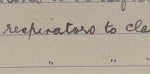 respirators to cla
" "